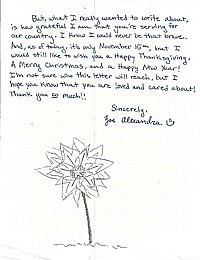 But, what I really wanted to write about,
is how grateful I am that you're serving for
our country. I know I could never be that brave.
And, as of today, it's only November 15th, but I
would still like to wish you a Happy Thanksgiving,
A Merry Christmas, and a Happy New Year!
I'm not sure who this letter will reach, but I
hope you know that you are loved and cared about!
Thank you so much!!
Sincerely,
Zoe Alexandra